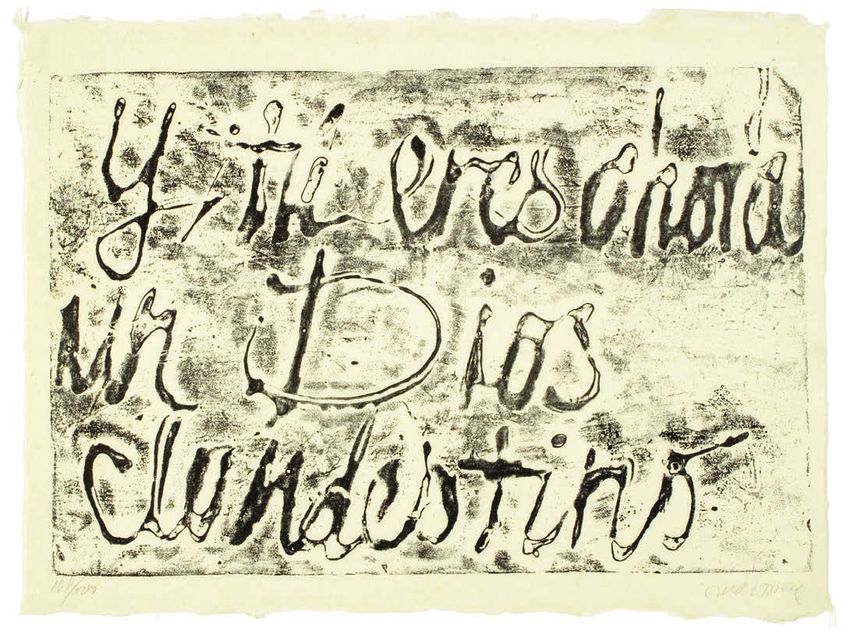 Y tú eres ahora
un Dios
clandestino